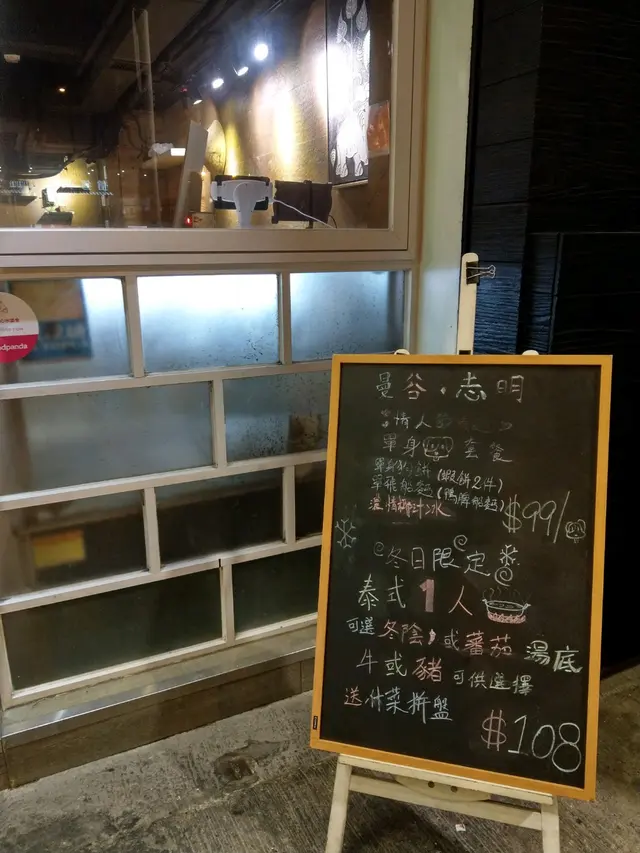 曼谷·志明
情人
單身 套餐
單身狗餅 (蝦餅2件)
單飛船麵 (鴨脾船麵)
濃情椰汁冰
$99/
冬日限定
泰式1人
可選冬陰或蕃茄湯底
牛或豬可供選擇
送什菜拼盤
$108
dpanda